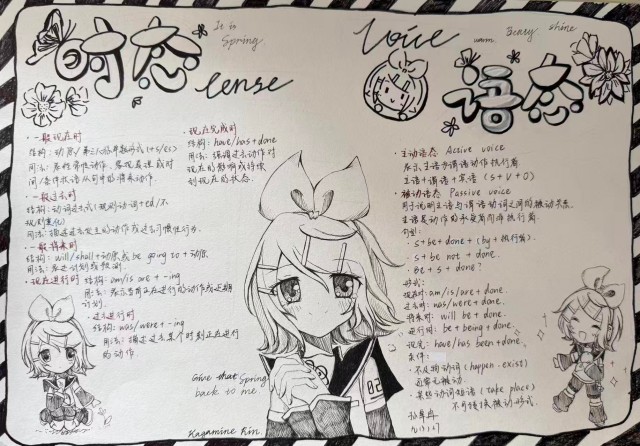 时态
It is
Spring
tense
·一般现在时
结构：动原/第三人称单数形式(+s/es)
用法：经常性动作、客观真理或时
间/条件状语从句中的将来动作。
·一般过去时
结构：动词过去式(规则动词+ed/不
规则变化)
用法：描述过去发生的动作或过去习惯性行为。
·一般将来时
结构：will/shall+动原或be going to+动原
用法：表达计划或预测。
·现在进行时 结构：am/is are + -ing
用法：表示当前正在进行的动作或近期
计划。
·过去进行时
结构：was/were + -ing
用法：描述过去某个时刻正在进行
的动作
·现在完成时
结构：have/has+done
用法：强调过去动作对
现在的影响或持续
到现在的状态。
Give that Spring
back to me.
Kagamine Rin.
02
Voice
warm. shine
语态
·主动语态 Active voice
表示主语为谓语动作执行者
主语+谓语+宾语(S+V+O)
被动语态 Passive voice
用于说明主语与谓语动词之间的被动关系。
主语是动作的承受者而非执行者。
句型：
·s+be+done+(by+执行者).
·s+be not + done.
·Be+s+done?
形式：
现在时：am/is/are + done
过去时：was/were+done.
将来时：will be + done.
进行时：be+being+done.
现完：have/has been+done.
条件：
·不及物动词(happen.exist)
通常无被动.
·某些动词短语(take place)
不可转换被动形式.